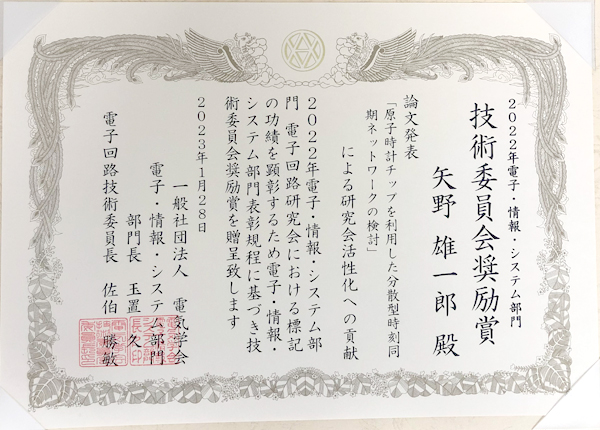 2022年電子・情報・システム部門
技術委員会奨励賞
矢野 雄一郎 殿
論文発表
「原子時計チップを利用した分散型時刻同
期ネットワークの検討」
による研究会活性化への貢献
2022年電子・情報・システム部
門 電子回路研究会における標記
の功績を顕彰するため電子・情報・
システム部門表彰規程に基づき技
術委員会奨励賞を贈呈致します
2023年1月28日
一般社団法人 電気学会
電子・情報・システム部門
部門長 玉置 久
電子回路技術委員長 佐伯 勝敏